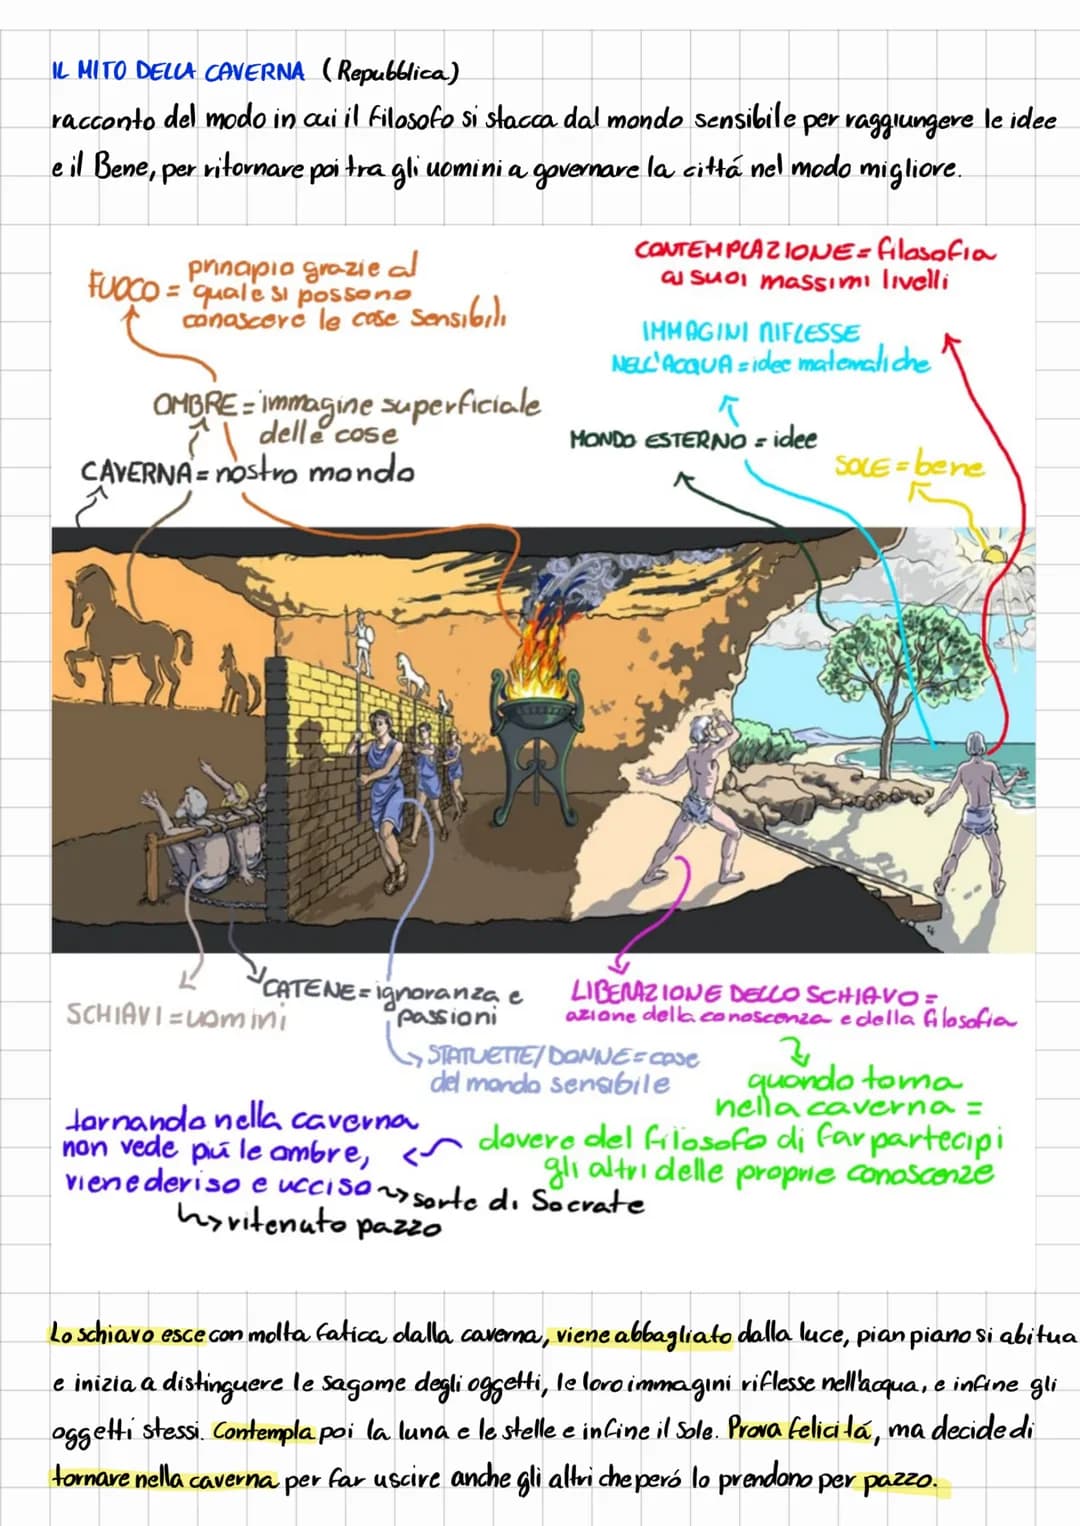 IL MITO DELLA CAVERNA (Repubblica)
racconto del modo in cui il filosofo si stacca dal mondo sensibile per raggiungere le idee
e il Bene, per ritornare poi tra gli uomini a governare la cittá nel modo migliore.
FUOCO = principio grazie al
quale si possono
conoscere le cose sensibili
CONTEMPLAZIONE = filosofia
ai suoi massimi livelli
IMMAGINI RIFLESSE
NELL'ACQUA = idee matematiche
OMBRE = immagine superficiale
delle cose
MONDO ESTERNO = idee
CAVERNA = nostro mondo
SOLE = bene
SCHIAVI = uomini
CATENE = ignoranza e
passioni
LIBERAZIONE DELLO SCHIAVO =
azione della conoscenza e della filosofia
STATUETTE/DONNE = cose
del mondo sensibile
quando torna
nella caverna =
dovere del filosofo di far partecipi
gli altri delle proprie conoscenze
tornando nella caverna
non vede piú le ombre,
viene deriso e ucciso
sorte di Socrate
ritenuto pazzo
Lo schiavo esce con molta fatica dalla caverna, viene abbagliato dalla luce, pian piano si abitua
e inizia a distinguere le sagome degli oggetti, le loro immagini riflesse nell'acqua, e infine gli
oggetti stessi. Contempla poi la luna e le stelle e infine il Sole. Prova felicitá, ma decide di
tornare nella caverna per far uscire anche gli altri che peró lo prendono per pazzo.